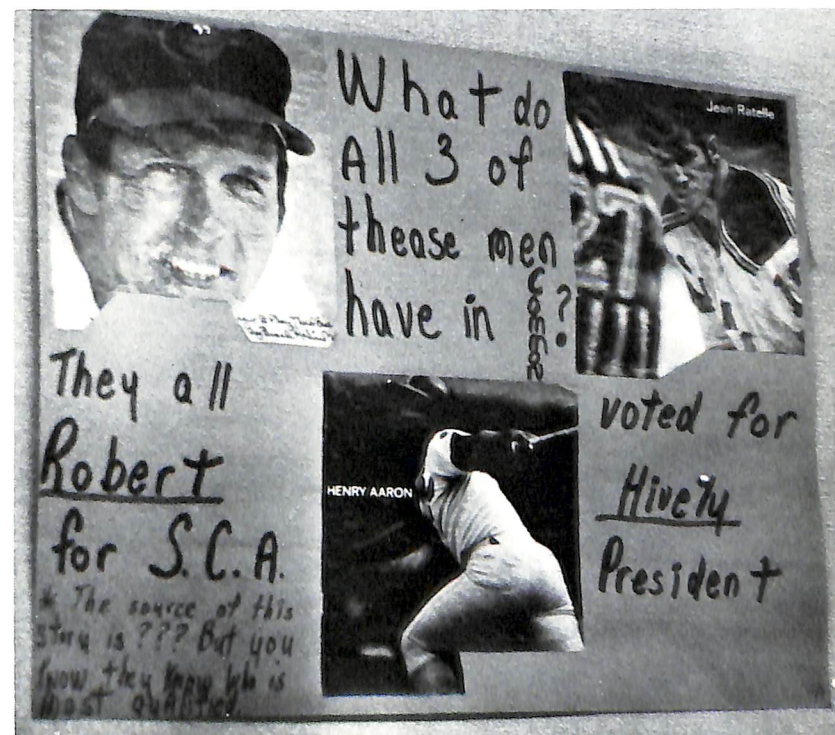 What do
All 3 of
thease men
have in common?
Jean Ratelle
They all
voted for
Robert
Hively
for S.C.A.
President
HENRY AARON
* The source of this
story is ??? But you
know they know who is
most qualified.